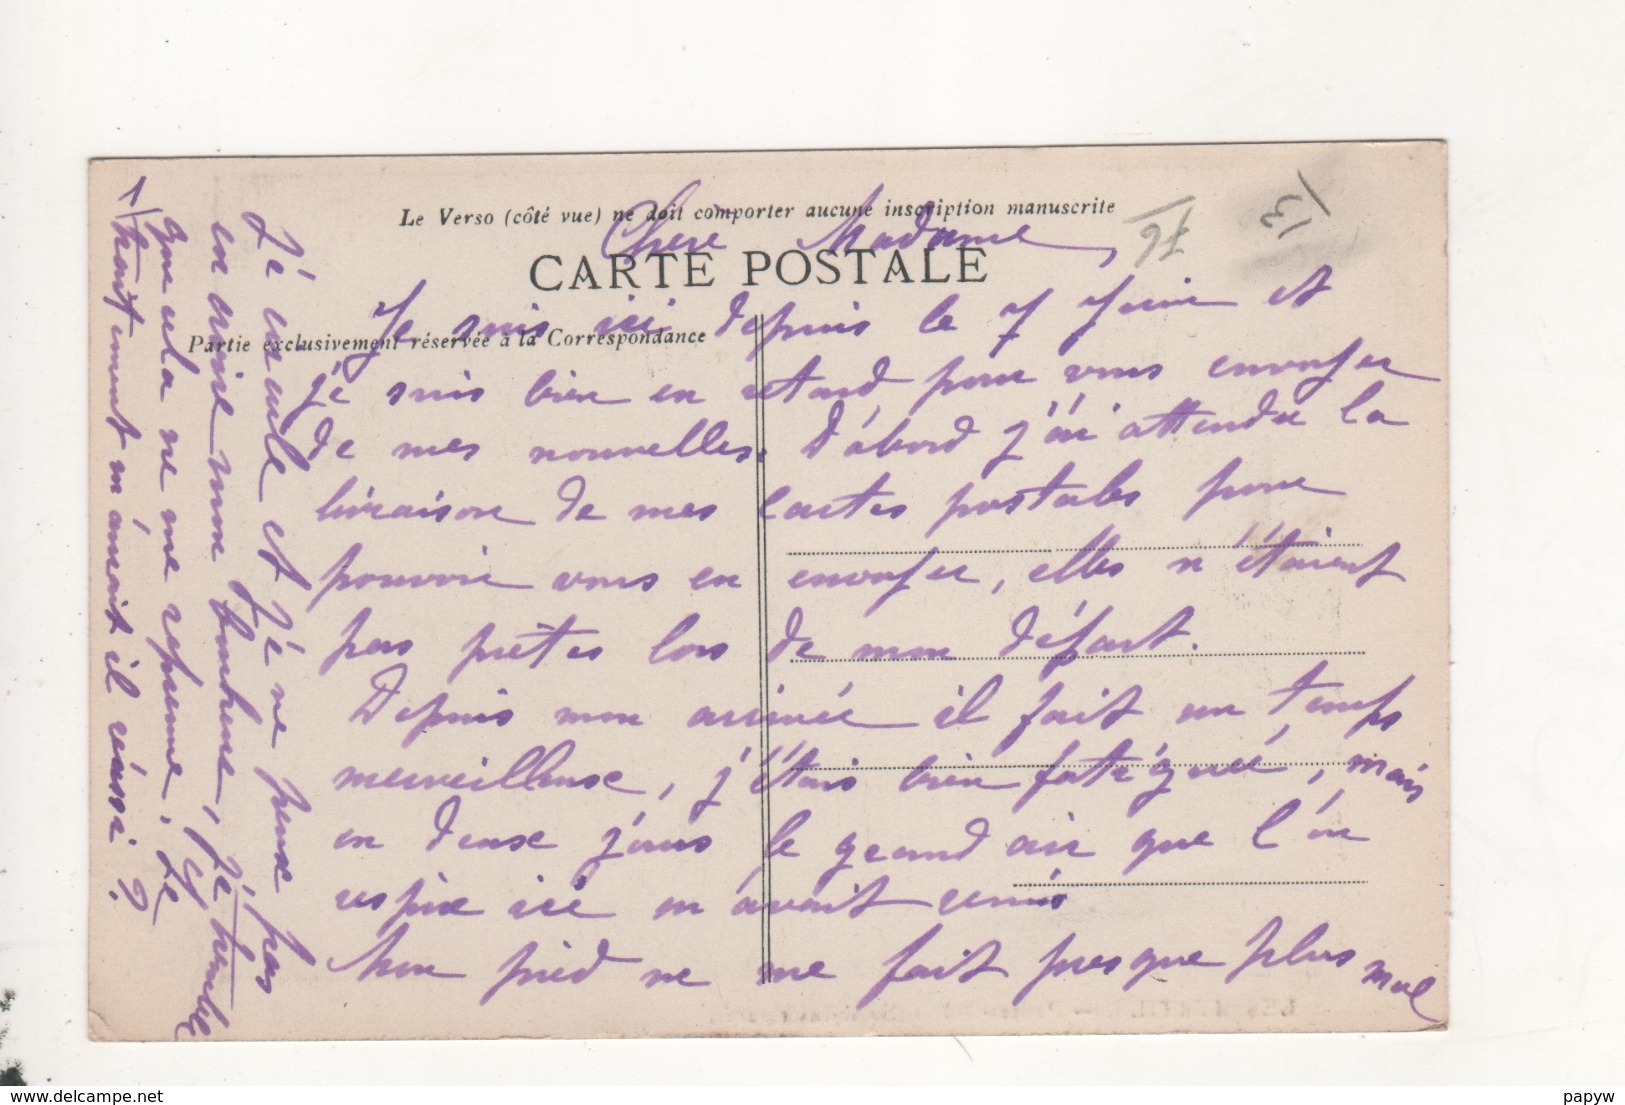 Le Verso (côté vue) ne doit comporter aucune inscription manuscrite
Chère Madame,
CARTE POSTALE
Partie exclusivement réservée à la Correspondance
76
13
Je suis ici depuis le 7 Juin et
je suis bien en retard pour vous envoyer
de mes nouvelles. D'abord j'ai attendu la
livraison de mes cartes postales pour
pouvoir vous en envoyer, elles n'étaient
pas prêtes lors de mon départ.
Depuis mon arrivée il fait un temps
merveilleux, j'étais bien fatiguée, mais
en deux jours le grand air que l'on
respire ici en avait remis
Mon pied ne me fait presque plus mal
Je coule et je ne peux pas
en croire mon bonheur, je tremble
que cela ne me reprenne. Le
traitement m'aurait il réussi ?
www.delcampe.net
papyw